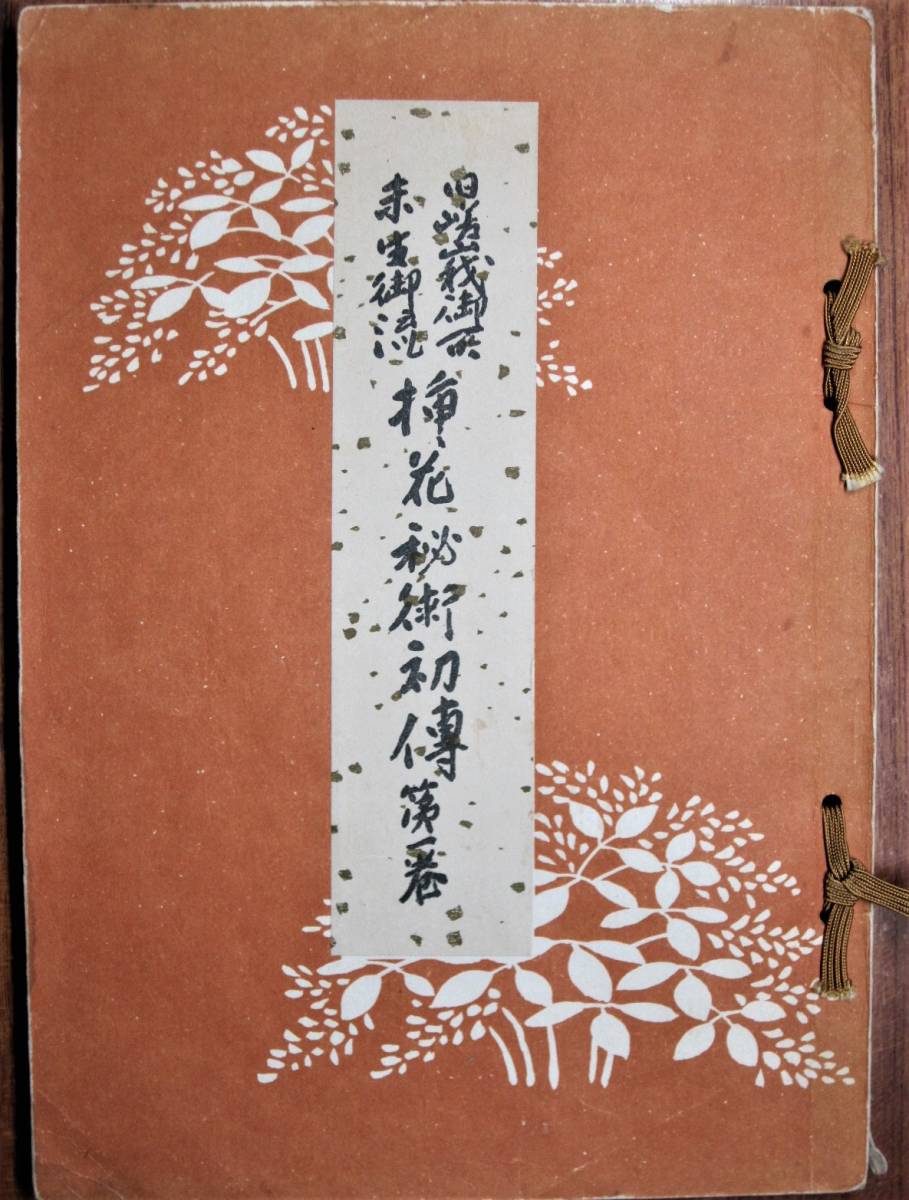 旧嵯峨御所
未生御流
挿花秘術初傳第一巻